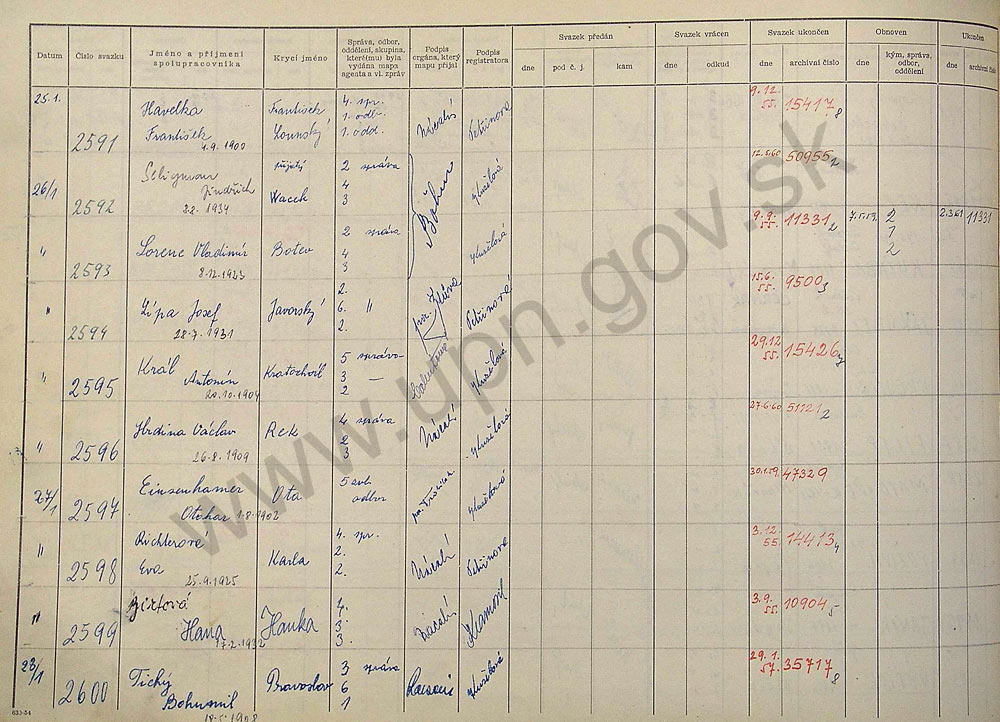 Datum
Číslo svazku
Jméno a příjmení
spolupracovníka
Krycí jméno
Správa, odbor,
oddělení, skupina,
které(mu) byla
vydána mapa
agenta a vl. zpráv
Podpis
orgána, který
mapu přijal
Podpis
registratora
Svazek předán
dne
pod č. j.
kam
Svazek vrácen
dne
odkud
Svazek ukončen
dne
archivní číslo
Obnoven
dne
kým, správa,
odbor,
oddělení
Ukončen
dne
archivní číslo
25.1.
2591
Havelka
František
4.9.1900
František
Lounský
4. spr.
1. odb.
1. odd.
9.12.
55.
15417 8
26/1
2592
Seligman
Jindřich
2.2.1934
Wacek
2 správa
4
3
Böhm
12.5.60
50955 2
"
2593
Lorenc Vladimír
8.12.1923
Botev
2 správa
4
3
9.9.
55.
11331 2
2
1
2
2.3.61
11331
"
2594
Lípa Josef
28.7.1931
Javorský
2.
6. "
2.
15.6.
55.
9500 3
"
2595
Král
Antonín
20.10.1904
Kratochvíl
5 správa
3 —
2
29.12
55.
15426
"
2596
Hrdina Václav
26.8.1909
Rek
4 správa
2
3
27.6.60
51221 2
27/1
2597
Einsenhamer
Otokar 1.8.1902
Ota
odbor
30.1.59.
47329
"
2598
Richterová
Eva
25.9.1925
Karla
4. spr.
2.
2.
3.12.
55.
14413 4
"
2599
Hana
17.2.1932
Hanka
3.9.
55.
10904 5
28/1
2600
Tichý
Bohumil
18.5.1908
Pravoslav
3 správa
6
1
29.1.
57.
35717 8
633-54
www.upn.gov.sk